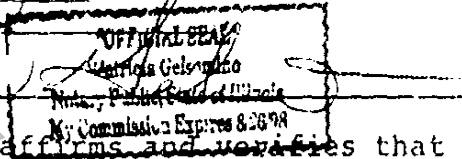 "OFFICIAL SEAL"
Patricia Gelsomino
Notary Public, State of Illinois
My Commission Expires 8/26/98
affirms and verifies that